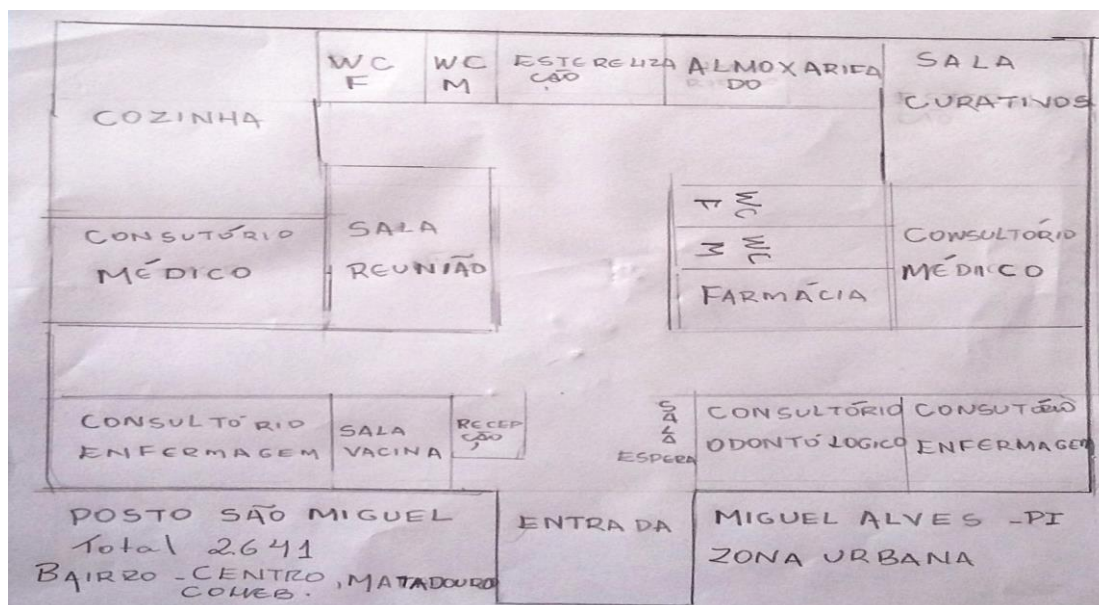 WC
F
WC
M
ESTERELIZA
ÇÃO
ALMOXARIFA
DO
SALA
CURATIVOS
COZINHA
WC
F
WC
M
FARMÁCIA
SALA
REUNIÃO
CONSUTÓRIO
MÉDICO
CONSULTÓRIO
MÉDICO
CONSULTÓRIO
ENFERMAGEM
SALA
VACINA
RECEP
ÇÃO
SALA
ESPERA
CONSULTÓRIO
ODONTÓLOGICO
CONSUTÓRIO
ENFERMAGEM
POSTO SÃO MIGUEL
Total 2641
BAIRRO - CENTRO, MATADOURO
ENTRADA
MIGUEL ALVES - PI
ZONA URBANA